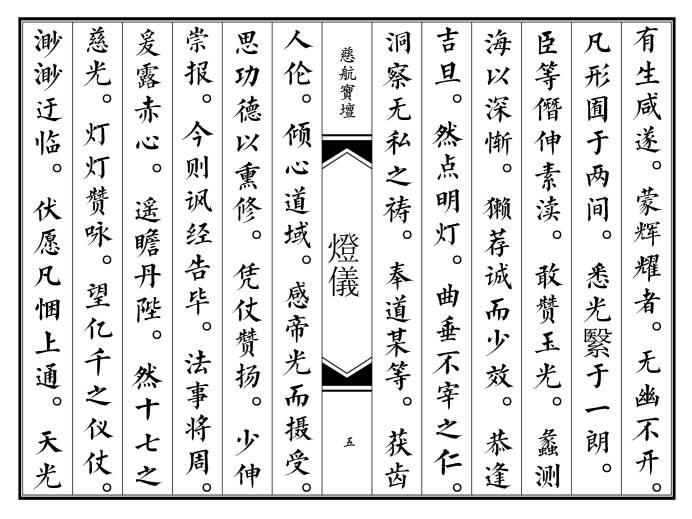 有生咸遂。蒙辉耀者。无幽不开。
凡形囿于两间。悉光翳于一朗。
臣等僭伸素渎。敢赞玉光。蠡测
海以深惭。獭荐诚而少效。恭逢
吉旦。然点明灯。曲垂不宰之仁。
洞察无私之祷。奉道某等。获齿
慈航寶壇
燈儀
五
人伦。倾心道域。感帝光而摄受。
思功德以熏修。凭仗赞扬。少伸
崇报。今则讽经告毕。法事将周。
爰露赤心。遥瞻丹陛。然十七之
慈光。灯灯赞咏。望亿千之仪仗。
渺渺迂临。伏愿凡悃上通。天光